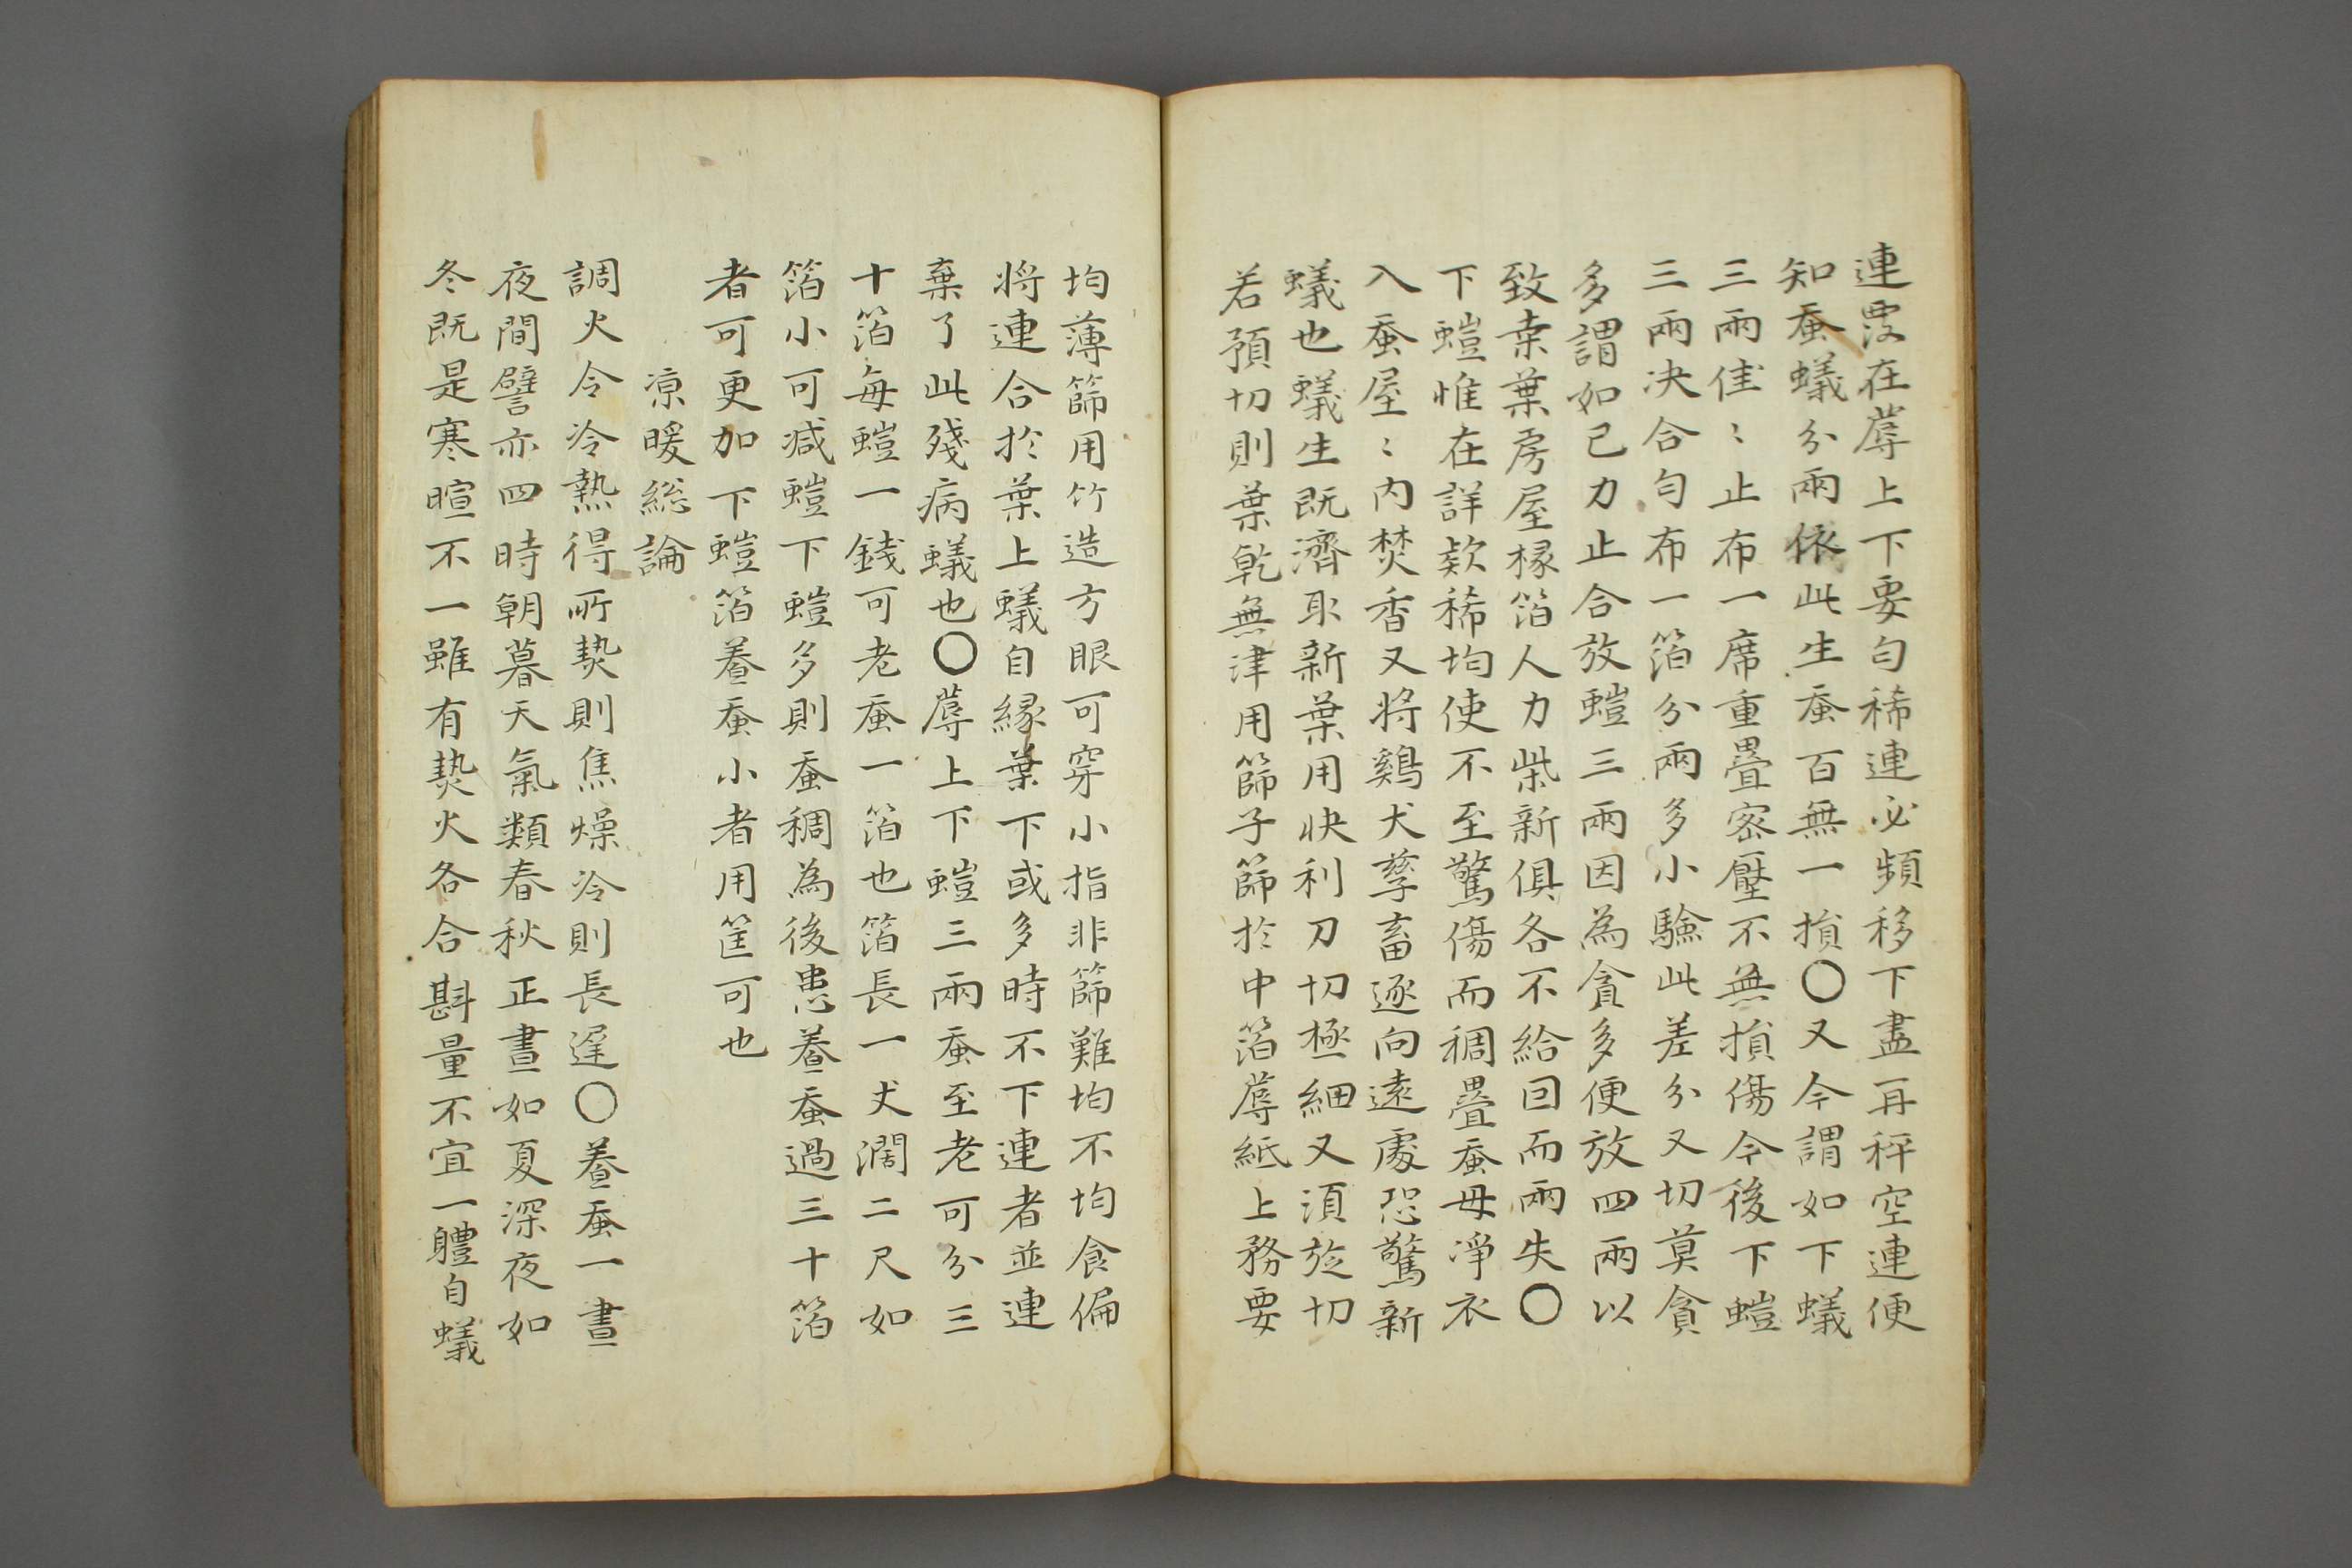 連覆在蓐上下要勻稀連必頻移下盡再秤空連便
知蚕蟻分兩依此生蚕百無一損〇又今謂如下蟻
三兩徃〻止布一席重疊宻壓不無損傷今後下螘
三兩决合勻布一箔分兩多小驗此差分又切莫貪
多謂如己力止合放螘三兩因為貪多便放四兩以
致桒葉房屋椽箔人力柴新俱各不給因而兩失〇
下螘惟在詳款稀均使不至驚傷而稠疊蚕母淨衣
入蚕屋〻內焚香又将鷄犬孳畜逐向遠處恐驚新
蟻也蟻生既濟取新葉用快利刀切極細又湏於切
若預切則葉乾無津用篩子篩於中箔蓐紙上務要
均薄篩用竹造方眼可穿小指非篩難均不均食偏
将連合於葉上蟻自縁葉下或多時不下連者並連
棄了此殘病蟻也〇蓐上下螘三兩蚕至老可分三
十箔每螘一錢可老蚕一箔也箔長一丈濶二尺如
箔小可减螘下螘多則蚕稠為後患養蚕過三十箔
者可更加下螘箔養蚕小者用筐可也
凉暖総論
調火令冷熱得所𤍠則焦燥冷則長遟〇養蚕一晝
夜間譬亦四時朝暮天氣類春秋正晝如夏深夜如
冬既是寒暄不一雖有𤍠火各合斟量不宜一體自蟻